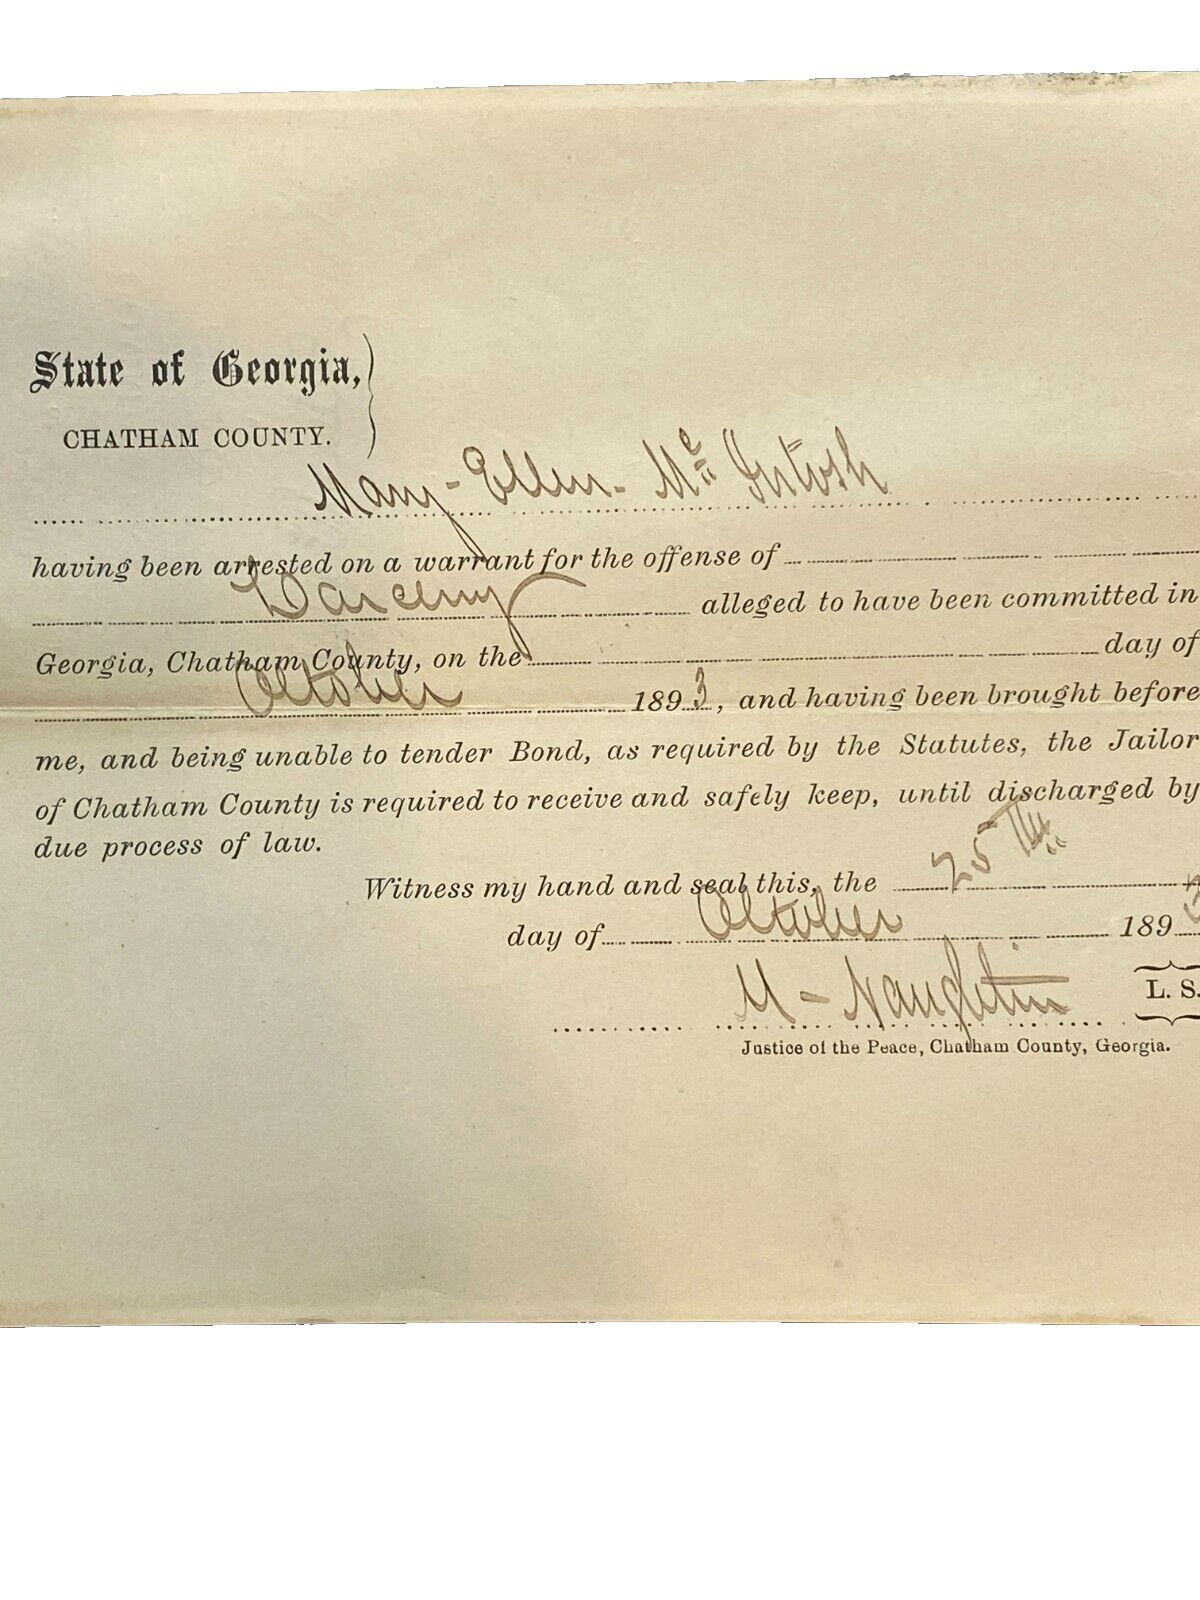 State of Georgia,
CHATHAM COUNTY.
Mary-Ellen-McIntosh
having been arrested on a warrant for the offense of
Larceny alleged to have been committed in
Georgia, Chatham County, on the day of
October 1893, and having been brought before
me, and being unable to tender Bond, as required by the Statutes, the Jailor
of Chatham County is required to receive and safely keep, until discharged by
due process of law.
Witness my hand and seal this, the 25th
day of October 1893
M-Naughtin L. S.
Justice of the Peace, Chatham County, Georgia.